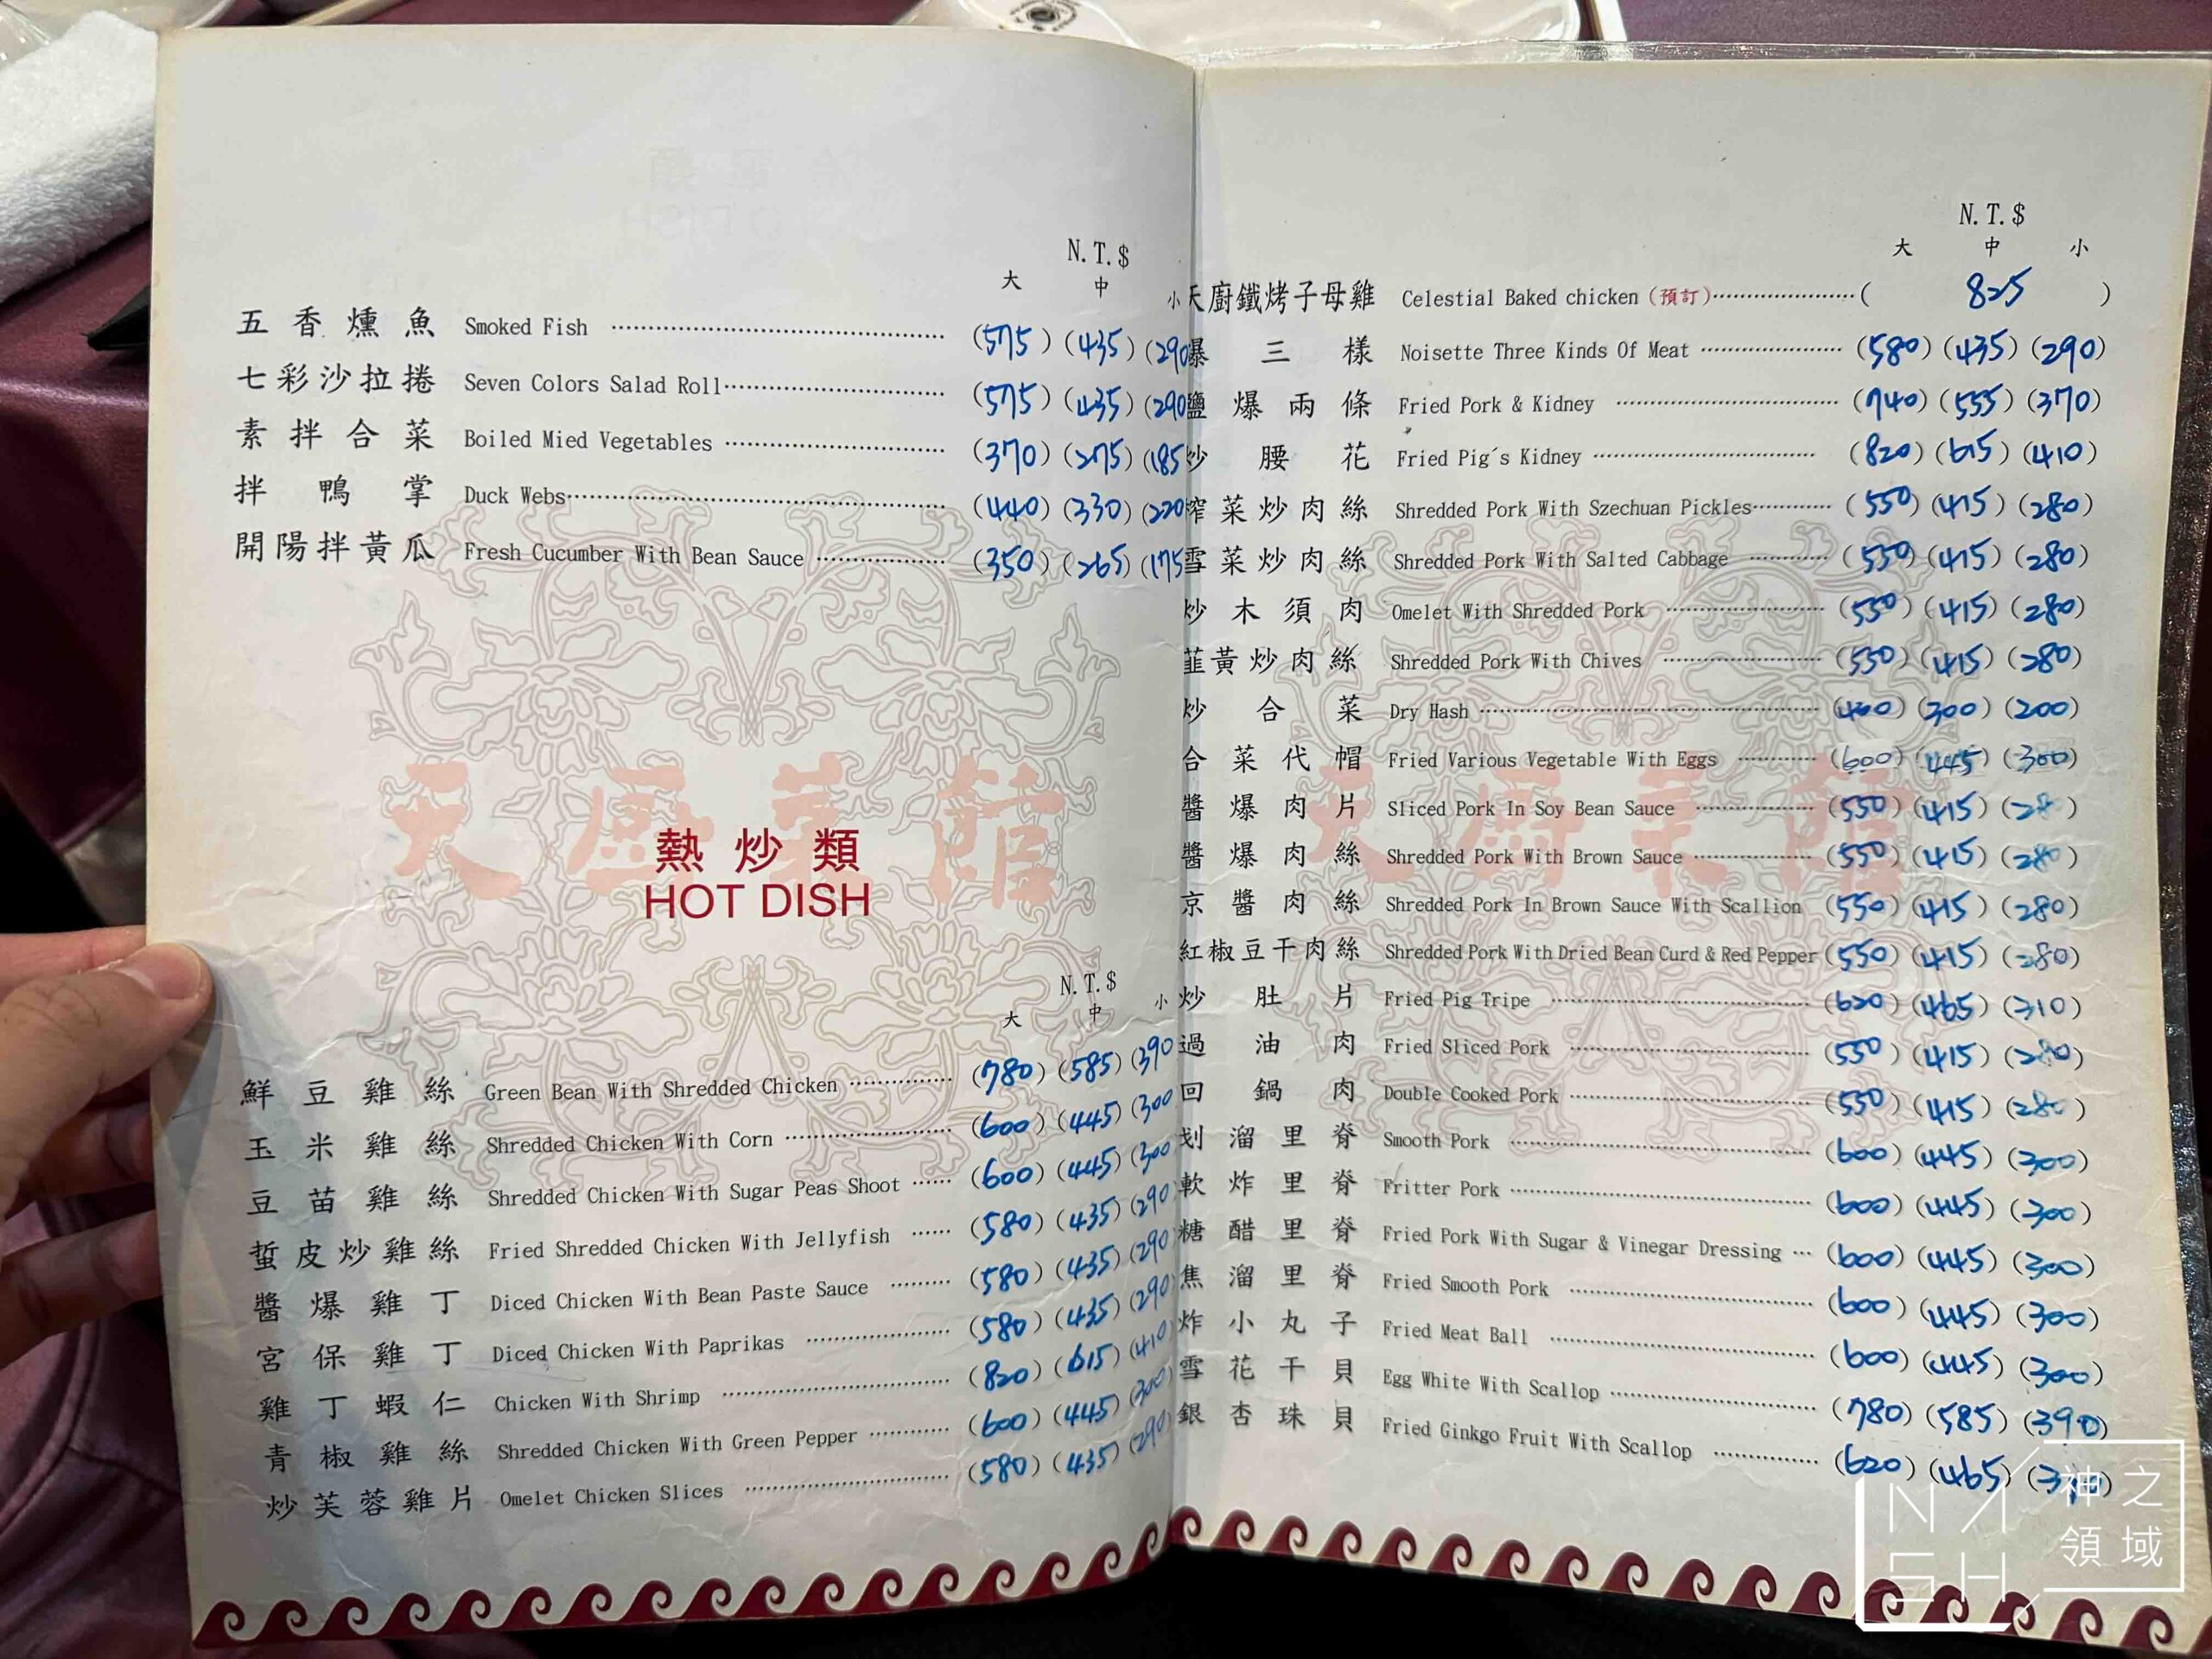 N.T.$
大 中 小
五香燻魚 Smoked Fish (575) (435) (290
七彩沙拉捲 Seven Colors Salad Roll (575) (435) (290
素拌合菜 Boiled Mied Vegetables (370) (275) (185
拌鴨掌 Duck Webs (440) (330) (220
開陽拌黃瓜 Fresh Cucumber With Bean Sauce (350) (265) (175
天廚菜館
熱炒類
HOT DISH
N.T.$
大 中 小
鮮豆雞絲 Green Bean With Shredded Chicken (780) (585) (390
玉米雞絲 Shredded Chicken With Corn (600) (445) (300
豆苗雞絲 Shredded Chicken With Sugar Peas Shoot (600) (445) (300
蜇皮炒雞絲 Fried Shredded Chicken With Jellyfish (580) (435) (290
醬爆雞丁 Diced Chicken With Bean Paste Sauce (580) (435) (290
宮保雞丁 Diced Chicken With Paprikas (580) (435) (290
雞丁蝦仁 Chicken With Shrimp (820) (615) (410
青椒雞絲 Shredded Chicken With Green Pepper (600) (445) (300
炒芙蓉雞片 Omelet Chicken Slices (580) (435) (290
N.T.$
大 中 小
天廚鐵烤子母雞 Celestial Baked chicken (預訂) ( 825 )
爆三樣 Noisette Three Kinds Of Meat (580) (435) (290)
鹽爆兩條 Fried Pork & Kidney (740) (555) (370)
炒腰花 Fried Pig's Kidney (820) (615) (410)
榨菜炒肉絲 Shredded Pork With Szechuan Pickles (550) (415) (280)
雪菜炒肉絲 Shredded Pork With Salted Cabbage (550) (415) (280)
炒木須肉 Omelet With Shredded Pork (550) (415) (280)
韮黃炒肉絲 Shredded Pork With Chives (550) (415) (280)
炒合菜 Dry Hash (400) (300) (200)
合菜代帽 Fried Various Vegetable With Eggs (600) (445) (300)
醬爆肉片 Sliced Pork In Soy Bean Sauce (550) (415) (28 )
醬爆肉絲 Shredded Pork With Brown Sauce (550) (415) (280)
京醬肉絲 Shredded Pork In Brown Sauce With Scallion (550) (415) (280)
紅椒豆干肉絲 Shredded Pork With Dried Bean Curd & Red Pepper (550) (415) (280)
炒肚片 Fried Pig Tripe (620) (465) (310)
過油肉 Fried Sliced Pork (550) (415) (280)
回鍋肉 Double Cooked Pork (550) (415) (280)
划溜里脊 Smooth Pork (600) (445) (300)
軟炸里脊 Fritter Pork (600) (445) (300)
糖醋里脊 Fried Pork With Sugar & Vinegar Dressing (600) (445) (300)
焦溜里脊 Fried Smooth Pork (600) (445) (300)
炸小丸子 Fried Meat Ball (600) (445) (300)
雪花干貝 Egg White With Scallop (780) (585) (390)
銀杏珠貝 Fried Ginkgo Fruit With Scallop (620) (465) (310)
天廚菜館
NASH 神之領域